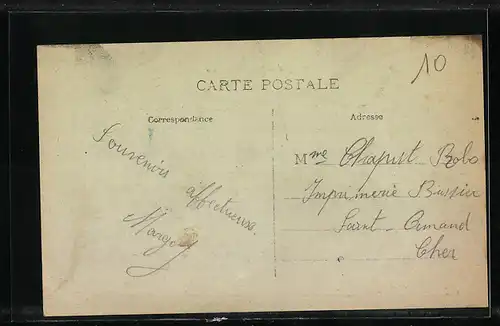 10
CARTE POSTALE
Correspondance
Adresse
Souvenirs
affectueux.
Margot
Mme Chaput-Bobo
Imprimerie Bussière
Saint-Amand
Cher